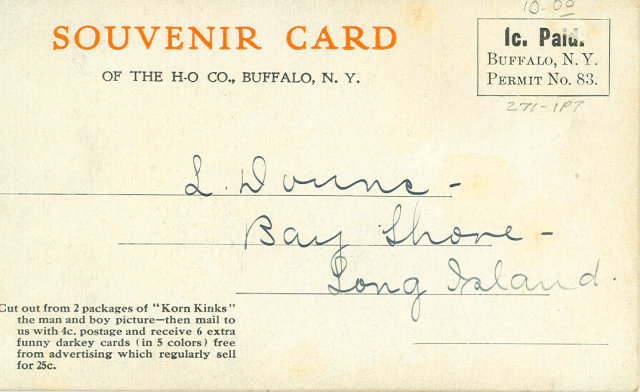 10.00
SOUVENIR CARD
OF THE H-O CO., BUFFALO, N. Y.
1c. Paid.
BUFFALO, N. Y.
PERMIT No. 83.
271-1P7
L. Doune -
Bay Shore -
Long Island.
Cut out from 2 packages of "Korn Kinks"
the man and boy picture—then mail to
us with 4c. postage and receive 6 extra
funny darkey cards (in 5 colors) free
from advertising which regularly sell
for 25c.